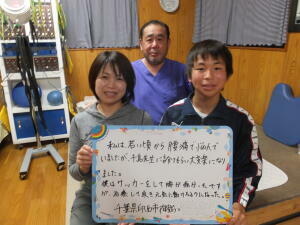 私は、若い頃から腰痛で悩んで
いましたが、千葉先生に診てもらい大丈夫になり
ました。
僕はサッカーをして腰が痛かったですが
が、治療して良く元気に動けるようになった。
千葉県印西市